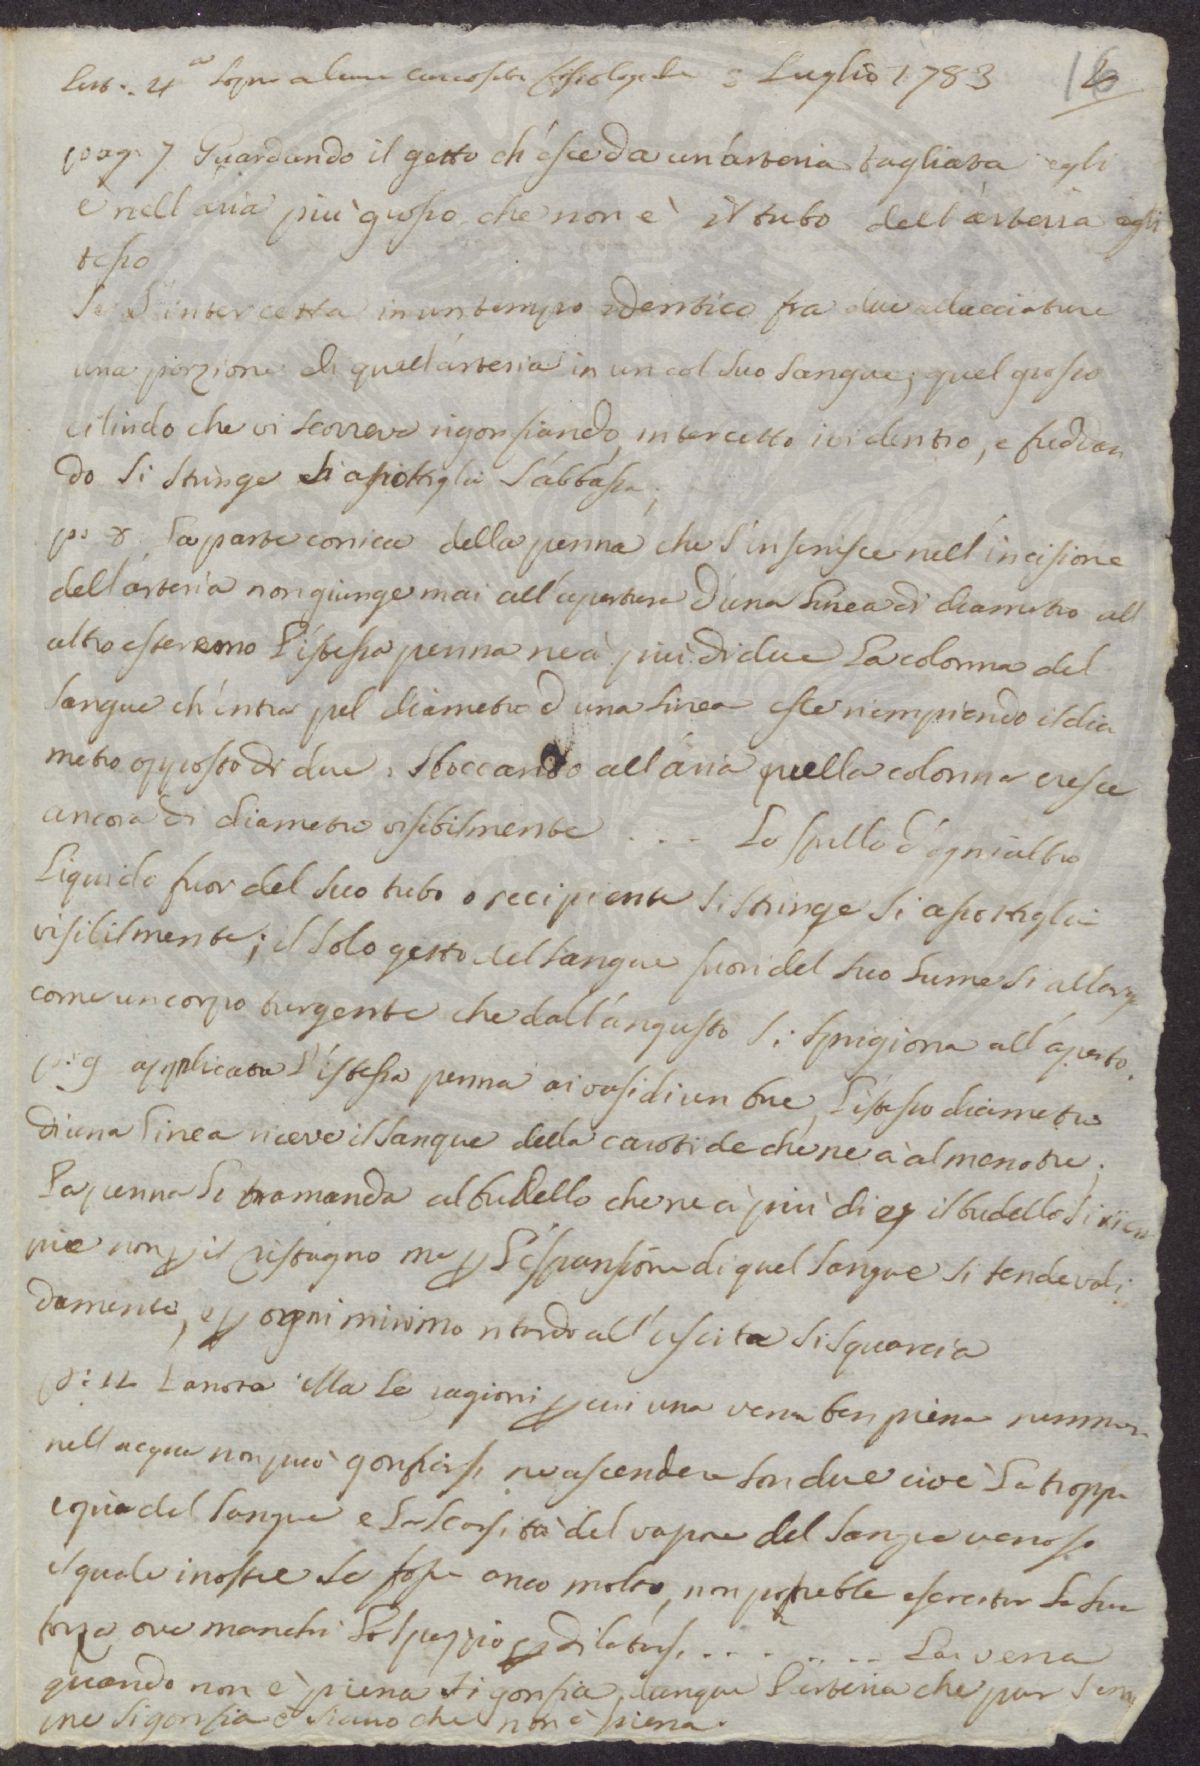 Lett. 4ª sopra alcune curiosità fisiologiche = Luglio 1783 16
pag. 7 Guardando il getto ch'esce da un'arteria tagliata egli
è nell'aria più grosso che non è il tubo dell'arteria egli
stesso
Se s'intercetta in un tempo identico fra due allacciature
una porzione di quell'arteria in un col suo sangue; quel grosso
cilindo che vi scorreva rigonfiando, intercetto ivi dentro, e freddan
do si stringe si assottiglia s'abbassa;
p: 8. La parte conica della penna che s'inserisce nell'incisione
dell'arteria non giunge mai all'apertura d'una linea di diametro all
altro esteremo l'istessa penna ne à più di due La colonna del
sangue ch'entra pel diametro d'una linea esce riempiendo il dia
metro opposto di due, sboccando all'aria quella colonna cresce
ancora di diametro visibilmente . . . . Lo spillo d'ogni altro
liquido fuor del suo tubo o recipiente si stringe si assottiglia
visibilmente; il solo getto del sangue fuori del suo lume si allarga
come un corpo turgente che dall'angusto si sprigiona all'aperto.
p: 9 applicata l'istessa penna ai vasi di un bue, l'istesso diametro
di una linea riceve il sangue della carotide che ne à almeno tre;
la penna si tramanda al budello che ne à più di il budello si riem
pie non p il ristagno ma p l'espansione di quel sangue si tende vali
damente, e p ogni minimo ritardo all'uscita si squarcia
p: 12 La nota Ma le ragioni p cui una vena ben piena nemmen
nell'acqua non può gonfiarsi ne ascendere son due cioè la troppa
copia del sangue e la scarsità del vapore del sangue venoso
il quale inoltre se fosse anco molto, non potrebbe esercitar la sua
forza ove manchi lo spazio p dilatarsi . . . . . . . La vena
quando non è piena si gonfia, dunque l'arteria che pur sem
pre si gonfia è sicuro che non è piena.